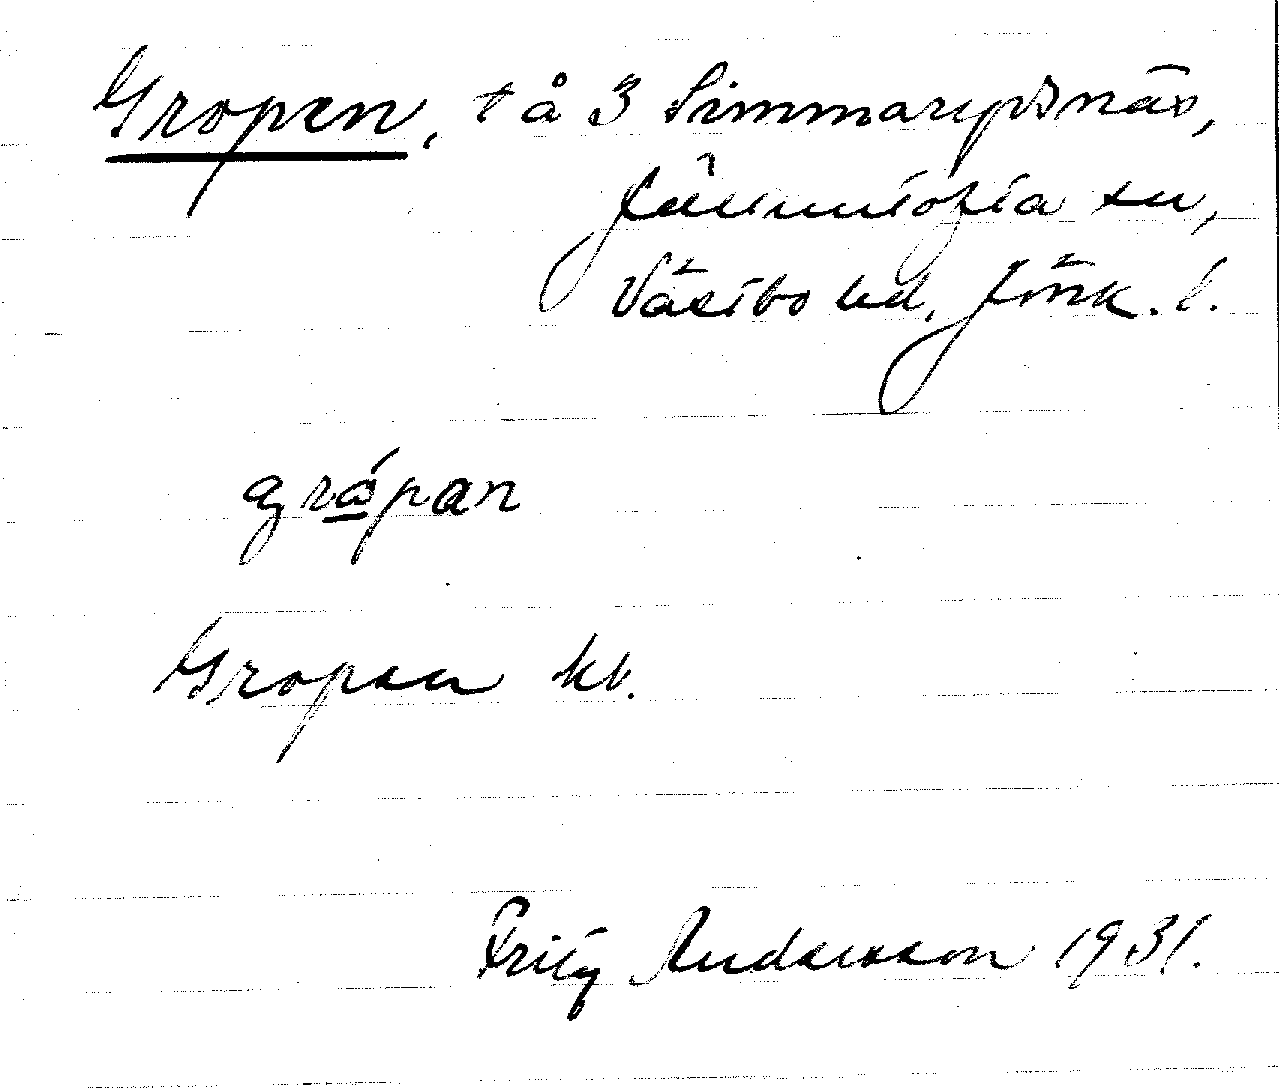 Gropen, t å 3 Simmarydsnäs,
Jälluntofta sn,
Västbo hd, Jönk. l.
gråpan
Gropen kt.
Fritz Andersson 1931.